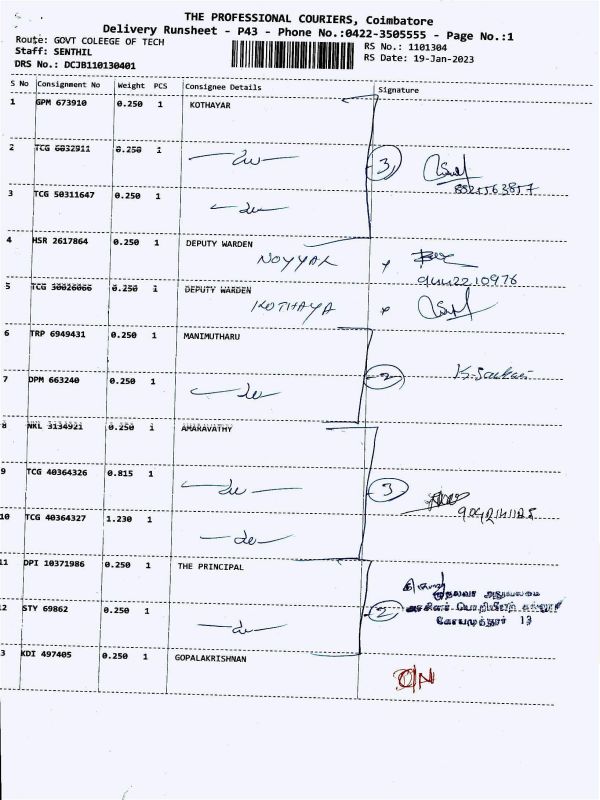 THE PROFESSIONAL COURIERS, Coimbatore
Delivery Runsheet - P43 - Phone No.:0422-3505555 - Page No.:1
Route: GOVT COLEEGE OF TECH
RS No.: 1101304
Staff: SENTHIL
RS Date: 19-Jan-2023
DRS No.: DCJB110130401
S No Consignment No Weight PCS Consignee Details Signature
1 GPM 673910 0.250 1 KOTHAYAR
2 TCG 6032911 0.250 1
3
8521563857
3 TCG 50311647 0.250 1
4 HSR 2617864 0.250 1 DEPUTY WARDEN
NOYYAL
9442210976
5 TCG 30026066 0.250 1 DEPUTY WARDEN
KOTHAYA
6 TRP 6949431 0.250 1 MANIMUTHARU
7 DPM 663240 0.250 1
2
8 NKL 3134921 0.250 1 AMARAVATHY
9 TCG 40364326 0.815 1
3
10 TCG 40364327 1.230 1
11 DPI 10371986 0.250 1 THE PRINCIPAL
முதல்வர் அலுவலகம்
12 STY 69862 0.250 1
2
அரசினர் பொறியியற் கல்லூரி
கோயமுத்தூர் 13
3 KDI 497405 0.250 1 GOPALAKRISHNAN